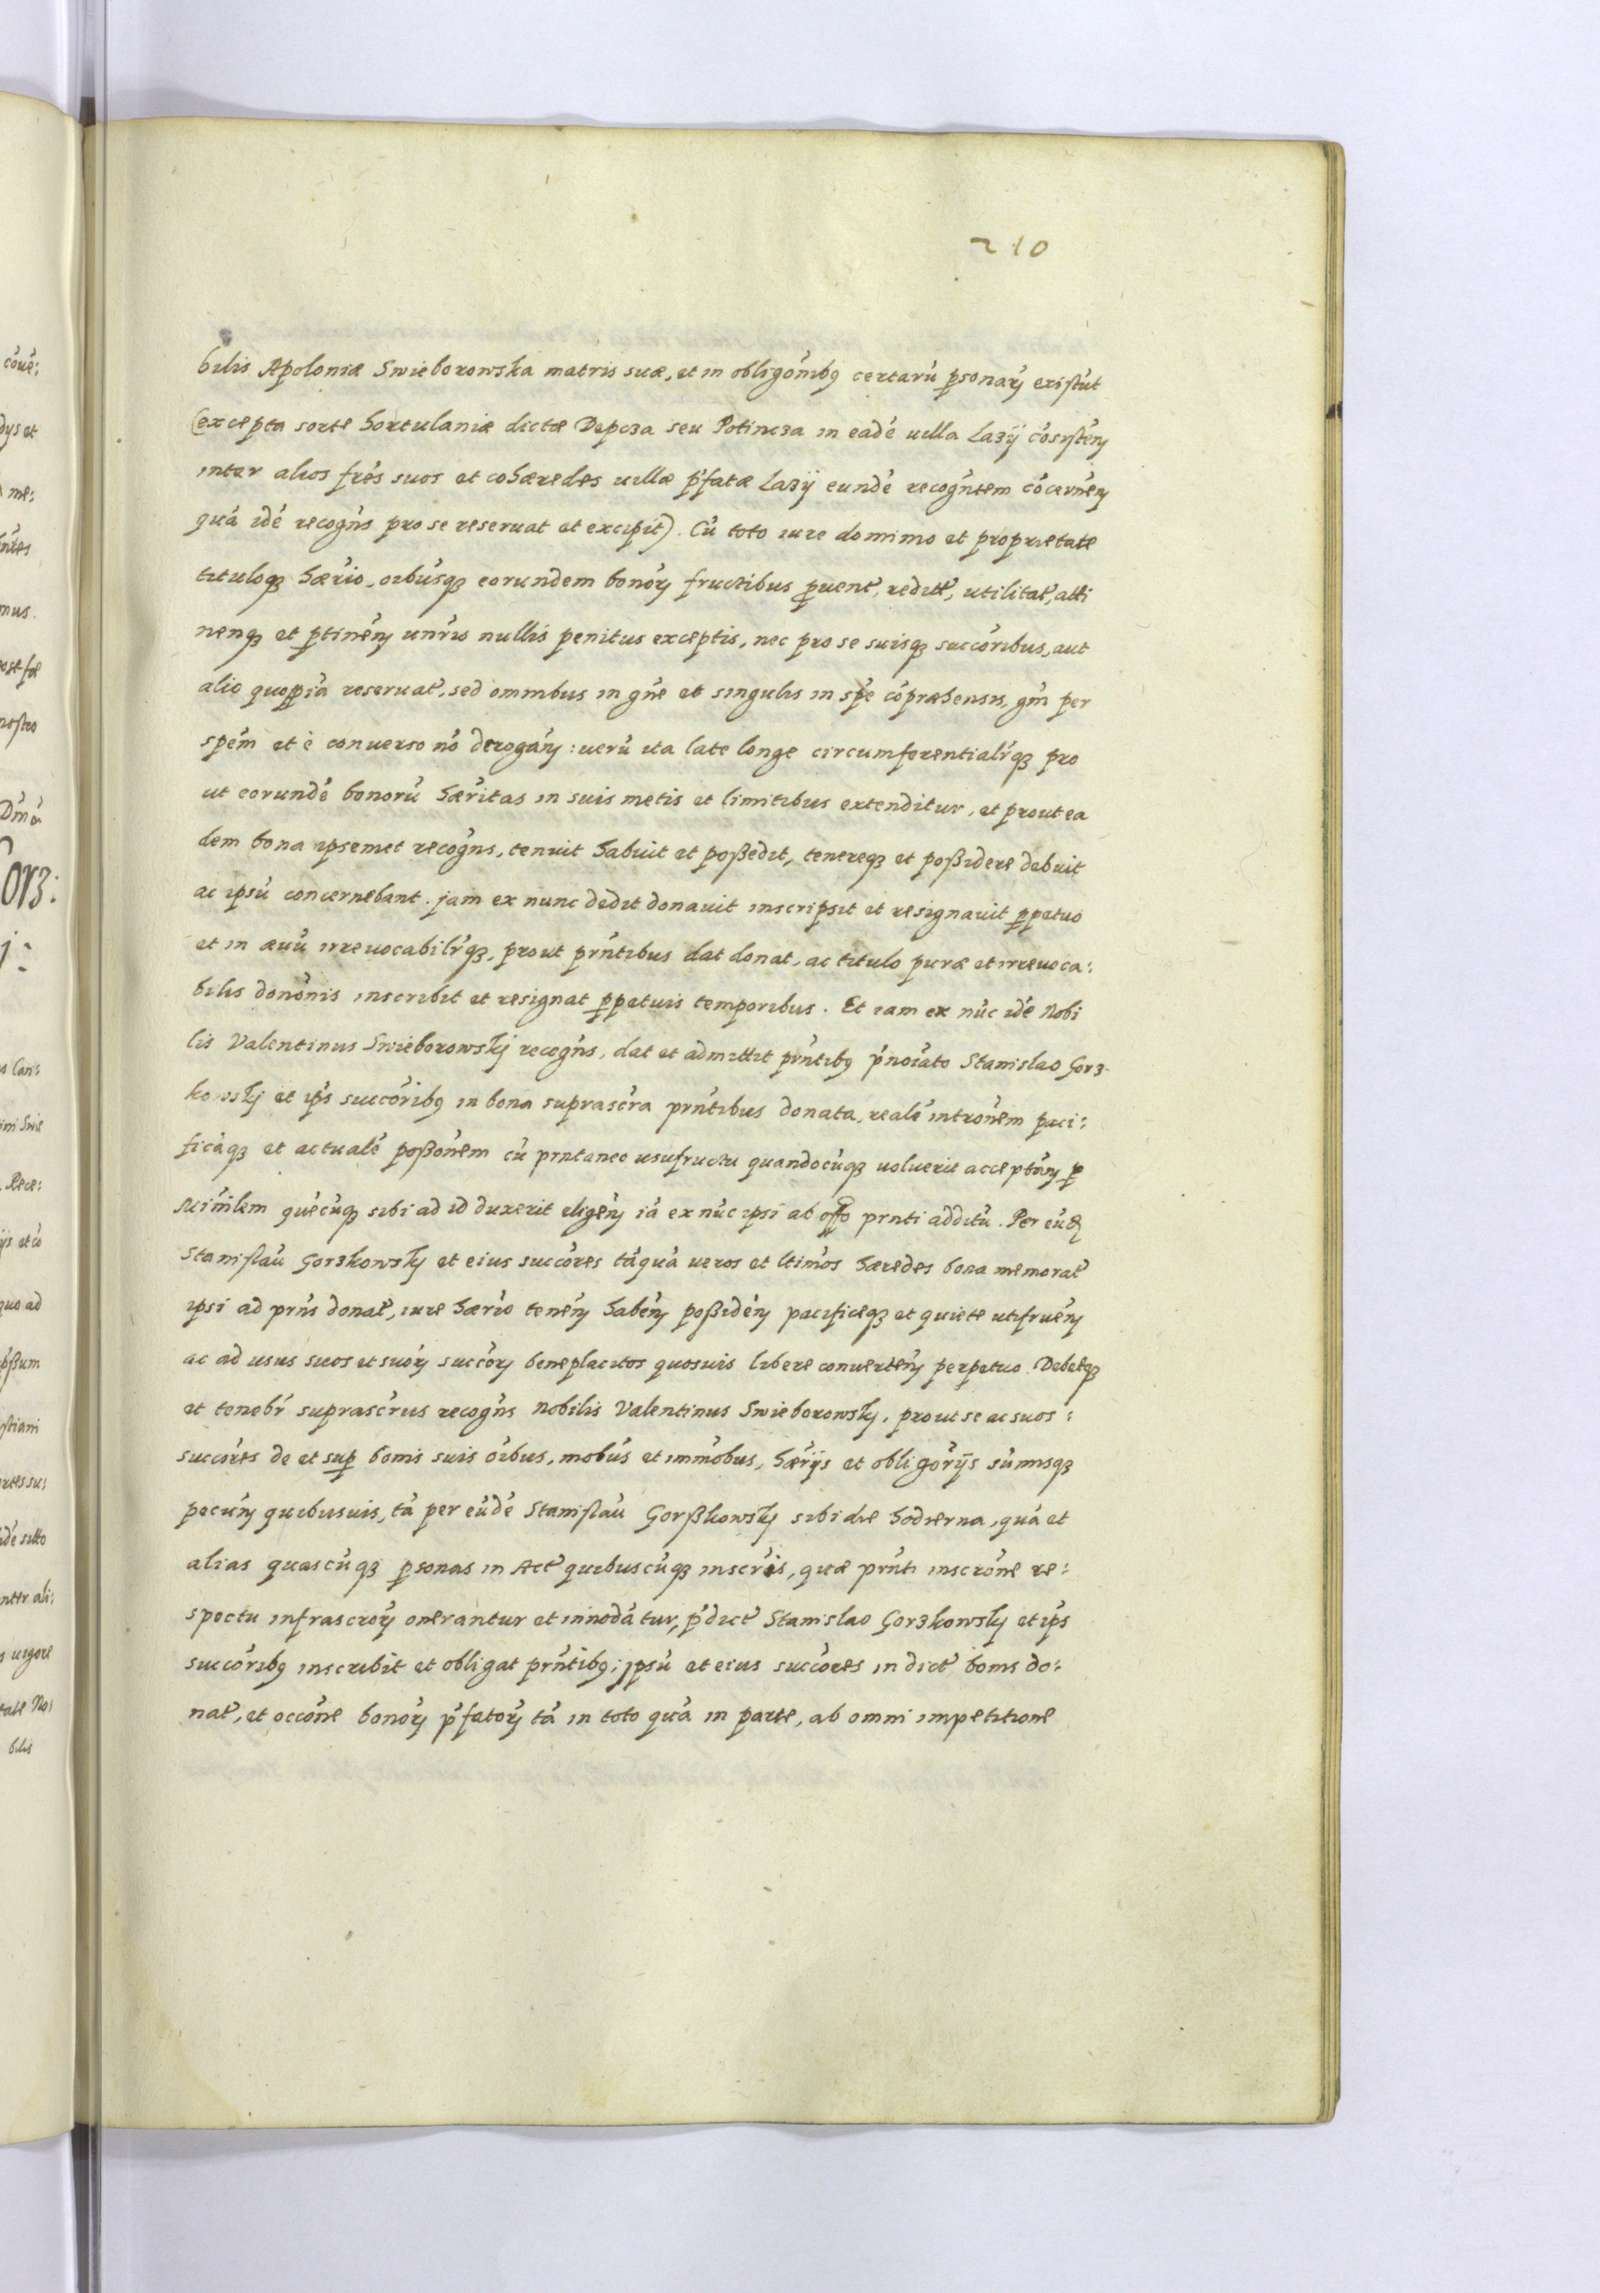 210
bilis Apoloniæ Swieborowska matris suæ, et in obligo͞nibꝰ certarū p̱sonarꝫ existūt
(excepta sorte hortulaniæ dictæ Depcza seu Potincza in eadē uilla Lazÿ cōsisteñ
inter alios fr̃es suos et cohæredes uillæ p̃fatæ Lazÿ eundē recogñtem cōcerneñ
quā idē recogñs pro se reseruat et excipit). Cū toto iure dominio et proprietate
tituloqꝫ hær̃io, oībusqꝫ eorundem bonorꝫ fructibus p̱uent̃, redit̃, utilitat̃, atti
nenqꝫ et p̱tineñ unĩus nullis penitus exceptis, nec pro se suisqꝫ succõribus, aut
alio quopiā reseruat̃, sed omnibus in gñe et singulis in sp̃e cōpræhensis, gñi per
sp̃em et è conuerso nō derogañ: uerū ita late longe circumferentialr̃qꝫ pro
ut eorundē bonorū hær̃itas in suis metis et limitibus extenditur, et prout ea
dem bona ipsemet recogñs, tenuit habuit et poßedit, tenereqꝫ et poßidere debuit
ac ipsū concernebant. jam ex nunc dedit donauit inscripsit et resignauit p̱petuo
et in æuū irreuocabilr̃qꝫ, prout pr̃ntibus dat donat, ac titulo puræ et irreuoca:
bilis donõnis inscribit et resignat p̱petuis temporibus. Et iam ex nūc idē Nobi
lis Valentinus Swieborowskj recogñs, dat et admittit pr̃ntibꝰ p̃noĩato Stanislao Gorz-
kowskj et ip̃s succõribꝰ in bona suprascr̃a pr̃ntibus donata, realē intronẽm paci:
ficāqꝫ et actualē poßonẽm cū pr̃ntaneo usufructu quandocūqꝫ uoluerit acceptañ p̱
Mim̃lem quēcūqꝫ sibi ad id duxerit eligeñ iā ex nūc ipsi ab offo pr̃nti additū. Per eūd̃
Stanislaū Gorzkowskj et eius succõres tāquā ueros et ltimos hæredes bona memorat̃
ipsi ad pr̃ns donat̃, iure hær̃io teneñ habeñ poßideñ pacificeqꝫ et quiete utifrueñ
ac ad usus suos et suorꝫ succorꝫ beneplacitos quosuis libere conuerteñ perpetuo. Debetqꝫ
et tenebr̃ suprascr̃us recogñs Nobilis Valentinus Swieborowskj, prout se ac suos:
succõres de et sup̱ bonis suis oĩbus, mobũs et immobus, hær̃ijs et obligor̃ijs sum̃isqꝫ
pecuñ quibusuis, tā per eūdē Stanislaū Gorßkowskj sibi die hodierna, quā et
alias quascūqꝫ p̱sonas in Act̃ quibuscūqꝫ inscr̃is, quæ pr̃nti inscrõne re:
spectu infrascrorꝫ onerantur et innodātur, p̃dict̃ Stanislao Gorzkowskj et ip̃s
succõribꝰ inscribit et obligat pr̃ntibꝰ; jpsū et eius succõres in dict̃ bonis do:
nat̃, et occõne bonorꝫ p̃fatorꝫ tā in toto quā in parte, ab omni impetitione